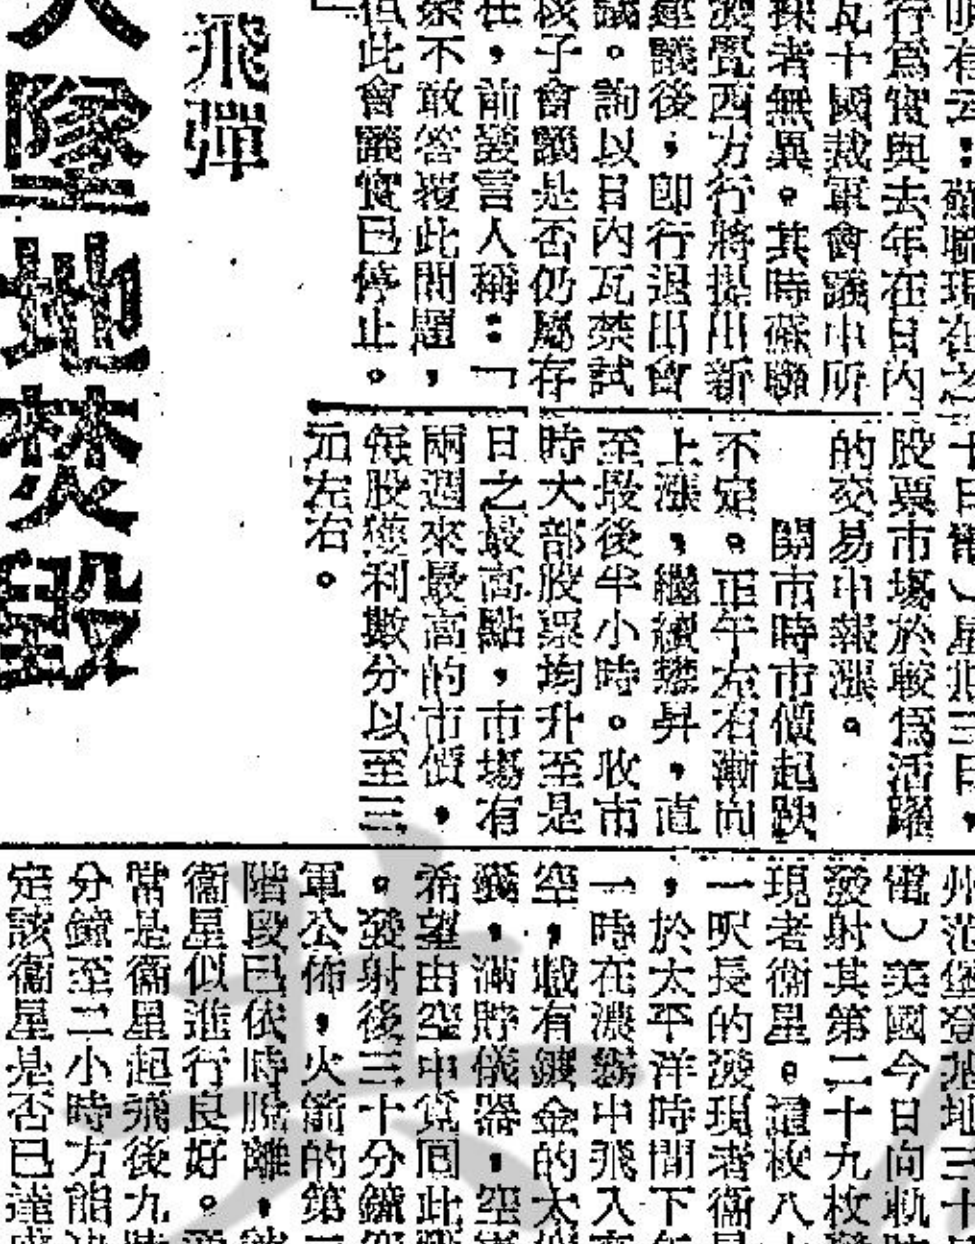 明有云：蘇聯現在之
行爲實與去年在日內
瓦十國裁軍會議中所
採者無異。其時蘇聯
發覺西方行將提出新
建議後，即行退出會
議。詢以日內瓦禁試
核子會議是否仍屬存
在，前發言人稱：「
余不敢答覆此問題，
但此會議實已停止。
」
十日電）星期三日，
股票市場於較爲活躍
的交易中報漲。
開市時市價起跌
不定。正午左右漸向
上漲，繼續攀昇，直
至最後半小時。收市
時大部股票均升至是
日之最高點，市場有
兩週來最高的市價，
每股獲利數分以至三
元左右。
飛彈
墜地焚毀
州范堡登基地三十
電）美國今日向軌
發射其第二十九枚發
現者衛星。這枚八十
一呎長的發現者衛星
，於太平洋時間下午
一時在濃霧中飛入
空，載有鍍金的太
艙，滿貯儀器，空軍
希望由空中覓回此
。發射後三十分鐘
軍公佈，火箭的第一
階段已依時脫離，
衛星似進行良好。
常是衛星起飛後九
分鐘至二小時方能決
定該衛星是否已達